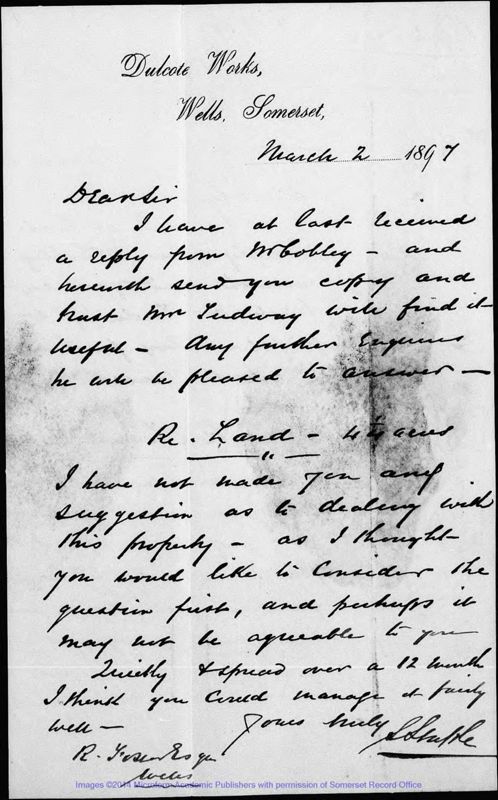 Dulcote Works,
Wells, Somerset,
March 2 1897
Dear Sir
I have at last received
a reply from Mr Cobley – and
herewith send you copy and
trust Mr Tudway will find it
useful – Any further Enquiries
he will be pleased to answer –
Re. Land – 4¼ acres
I have not made you any
suggestion as to dealing with
this property – as I thought
you would like to Consider the
question first, and perhaps it
may not be agreeable to you
Quickly & spread over a 12 month
I think you Could manage it fairly
well –
Yours truly
R. Foster Esqr
Wells
Images ©2014 Microform Academic Publishers with permission of Somerset Record Office